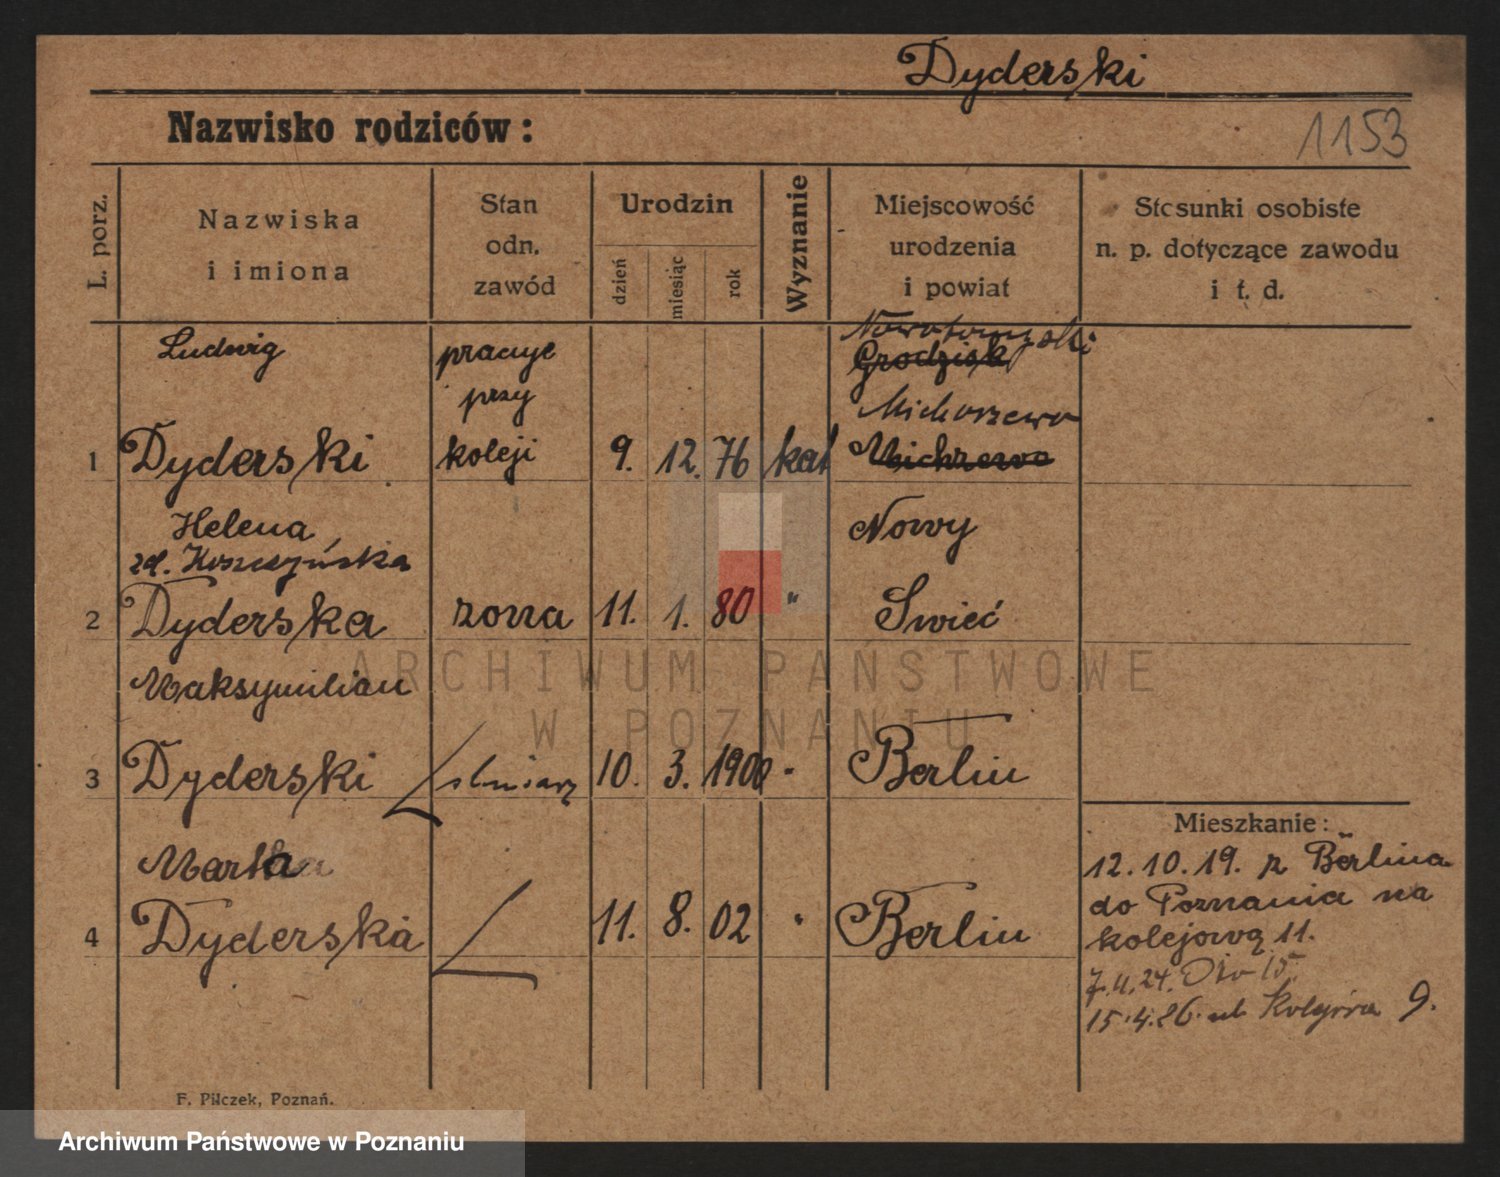 Dyderski
Nazwisko rodziców:
1153
L. porz.
Nazwiska
i imiona
Stan
odn.
zawód
Urodzin
dzień
miesiąc
rok
Wyznanie
Miejscowość
urodzenia
i powiat
Stosunki osobiste
n. p. dotyczące zawodu
i t. d.
Ludwig
pracuje
przy
Nowotomyski
Grodzisk
Michorzewo
1 Dyderski koleji 9. 12. 76 kat Michrzewo
Helena
Nowy
2 Dyderska zona 11. 1. 80 " Swieć
Maksymilian
3 Dyderski slusiarz 10. 3. 1900 " Berlin
Marta
4 Dyderska 11. 8. 02 " Berlin
Mieszkanie:
12. 10. 19. z Berlina
do Poznania na
kolejową 11.
15.4.26. ul. 9.
F. Pilczek, Poznań.
ARCHIWUM PAŃSTWOWE
W POZNANIU
Archiwum Państwowe w Poznaniu